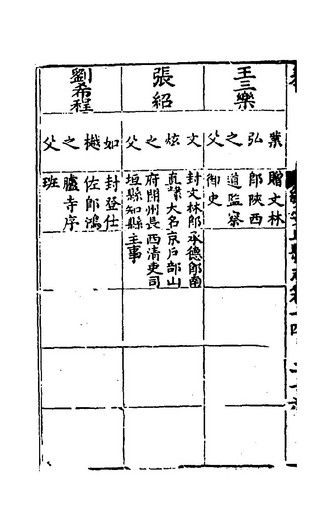 王三樂
業弘之父
贈文林
郎陝西
道監察
御史
張紹
文炫之父
封文林郎承德郎南
直隸大名京戶部山
府開州長西清吏司
垣縣知縣主事
劉希程
如樾之父
封登仕
佐郎鴻
臚寺序
班